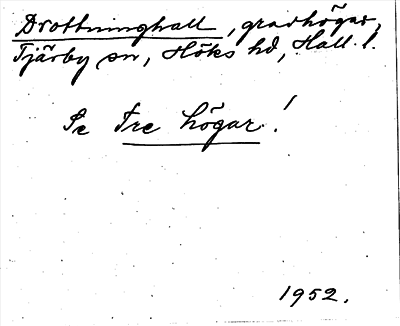 Drottninghall, gravhögar,
Tjärby sn, Höks hd, Hall. l.
Se Tre högar!
1952.